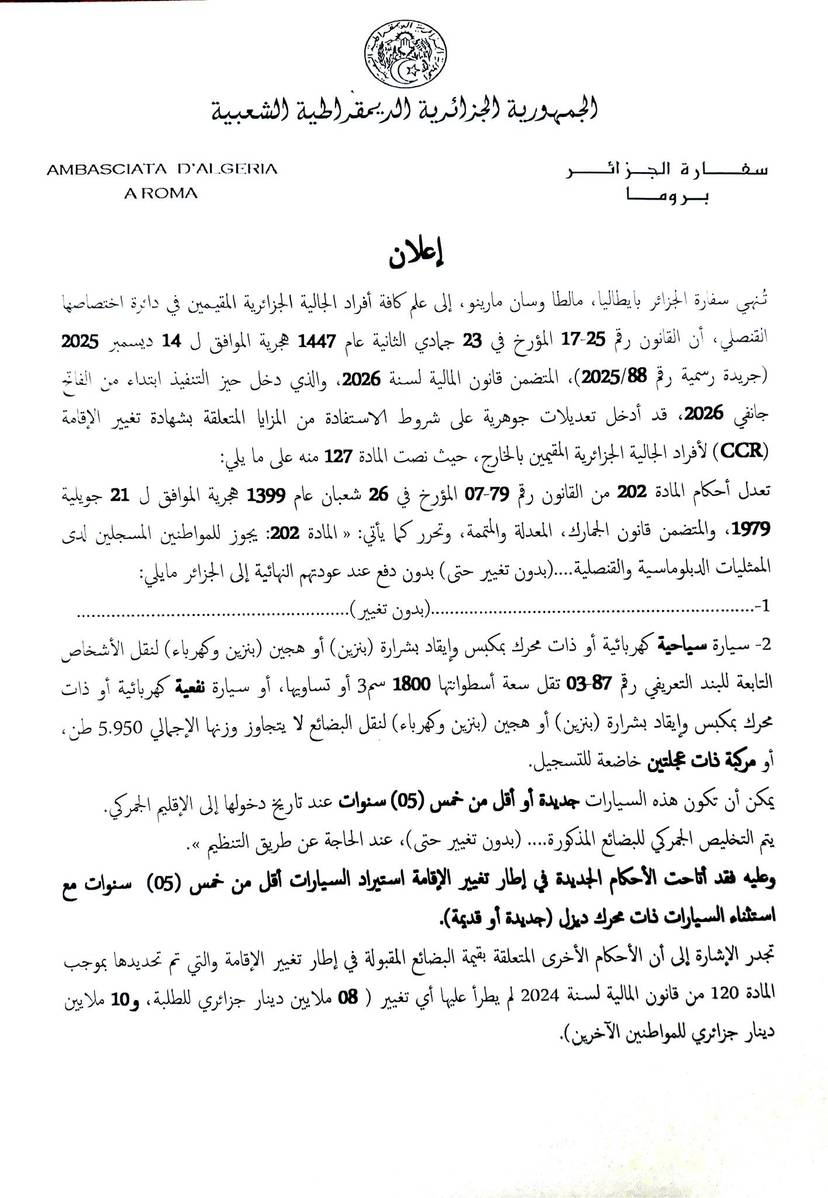 الجمهورية الجزائرية الديمقراطية الشعبية
سفــــارة الجــزائــــر
بــرومــــا
AMBASCIATA D'ALGERIA
A ROMA
إعلان
تُنهي سفارة الجزائر بايطاليا، مالطا وسان مارينو، إلى علم كافة أفراد الجالية الجزائرية المقيمين في دائرة اختصاصها
القنصلي، أن القانون رقم 25-17 المؤرخ في 23 جمادي الثانية عام 1447 هجرية الموافق ل 14 ديسمبر 2025
(جريدة رسمية رقم 2025/88)، المتضمن قانون المالية لسنة 2026، والذي دخل حيز التنفيذ ابتداء من الفاتح
جانفي 2026، قد أدخل تعديلات جوهرية على شروط الاستفادة من المزايا المتعلقة بشهادة تغيير الإقامة
(CCR) لأفراد الجالية الجزائرية المقيمين بالخارج، حيث نصت المادة 127 منه على ما يلي:
تعدل أحكام المادة 202 من القانون رقم 79-07 المؤرخ في 26 شعبان عام 1399 هجرية الموافق ل 21 جويلية
1979، والمتضمن قانون الجمارك، المعدلة والمتممة، وتحرر كما يأتي: « المادة 202: يجوز للمواطنين المسجلين لدى
الممثليات الدبلوماسية والقنصلية....(بدون تغيير حتى) بدون دفع عند عودتهم النهائية إلى الجزائر مايلي:
1-................................................................(بدون تغيير)......................................................
2- سيارة سياحية كهربائية أو ذات محرك بمكبس وإيقاد بشرارة (بنزين) أو هجين (بنزين وكهرباء) لنقل الأشخاص
التابعة للبند التعريفي رقم 87-03 تقل سعة أسطوانتها 1800 سم3 أو تساويها، أو سيارة نفعية كهربائية أو ذات
محرك بمكبس وإيقاد بشرارة (بنزين) أو هجين (بنزين وكهرباء) لنقل البضائع لا يتجاوز وزنها الإجمالي 5.950 طن،
أو مركبة ذات عجلتين خاضعة للتسجيل.
يمكن أن تكون هذه السيارات جديدة أو أقل من خمس (05) سنوات عند تاريخ دخولها إلى الإقليم الجمركي.
يتم التخليص الجمركي للبضائع المذكورة.... (بدون تغيير حتى)، عند الحاجة عن طريق التنظيم ».
وعليه فقد أتاحت الأحكام الجديدة في إطار تغيير الإقامة استيراد السيارات أقل من خمس (05) سنوات مع
استثناء السيارات ذات محرك ديزل (جديدة أو قديمة).
تجدر الإشارة إلى أن الأحكام الأخرى المتعلقة بقيمة البضائع المقبولة في إطار تغيير الإقامة والتي تم تحديدها بموجب
المادة 120 من قانون المالية لسنة 2024 لم يطرأ عليها أي تغيير ( 08 ملايين دينار جزائري للطلبة، و10 ملايين
دينار جزائري للمواطنين الآخرين).